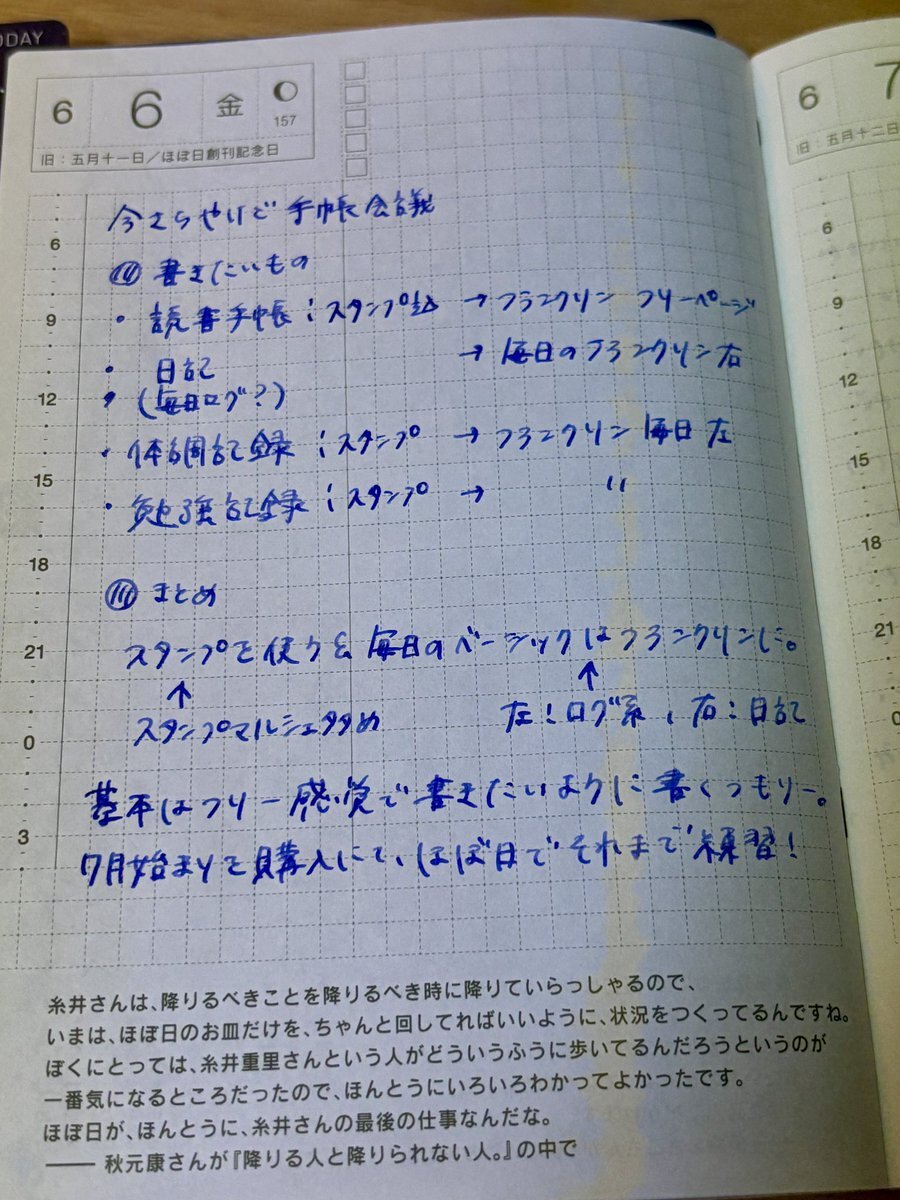 ODAY
6 6 金 157
旧：五月十一日／ほぼ日創刊記念日
6 7
旧：五月十二日
今さらやけど手帳会議
書きたいもの
・読書手帳：スタンプ込 → フランクリン フリーページ
・日記 → 毎日のフランクリン右
・(毎日ログ?)
・体調記録：スタンプ → フランクリン毎日左
・勉強記録：スタンプ → 〃
まとめ
スタンプを使う& 毎日のベーシックはフランクリンに。
↑ ↑
スタンプマルシェのため 左：ログ系、右：日記
基本はフリー感覚で書きたいように書くつもりー。
7月始まりを購入して、ほぼ日でそれまで練習!
6
9
12
15
18
21
0
3
6
9
12
15
18
21
0
糸井さんは、降りるべきことを降りるべき時に降りていらっしゃるので、
いまは、ほぼ日のお皿だけを、ちゃんと回してればいいように、状況をつくってるんですね。
ぼくにとっては、糸井重里さんという人がどういうふうに歩いてるんだろうというのが
一番気になるところだったので、ほんとうにいろいろわかってよかったです。
ほぼ日が、ほんとうに、糸井さんの最後の仕事なんだな。
―― 秋元康さんが『降りる人と降りられない人。』の中で